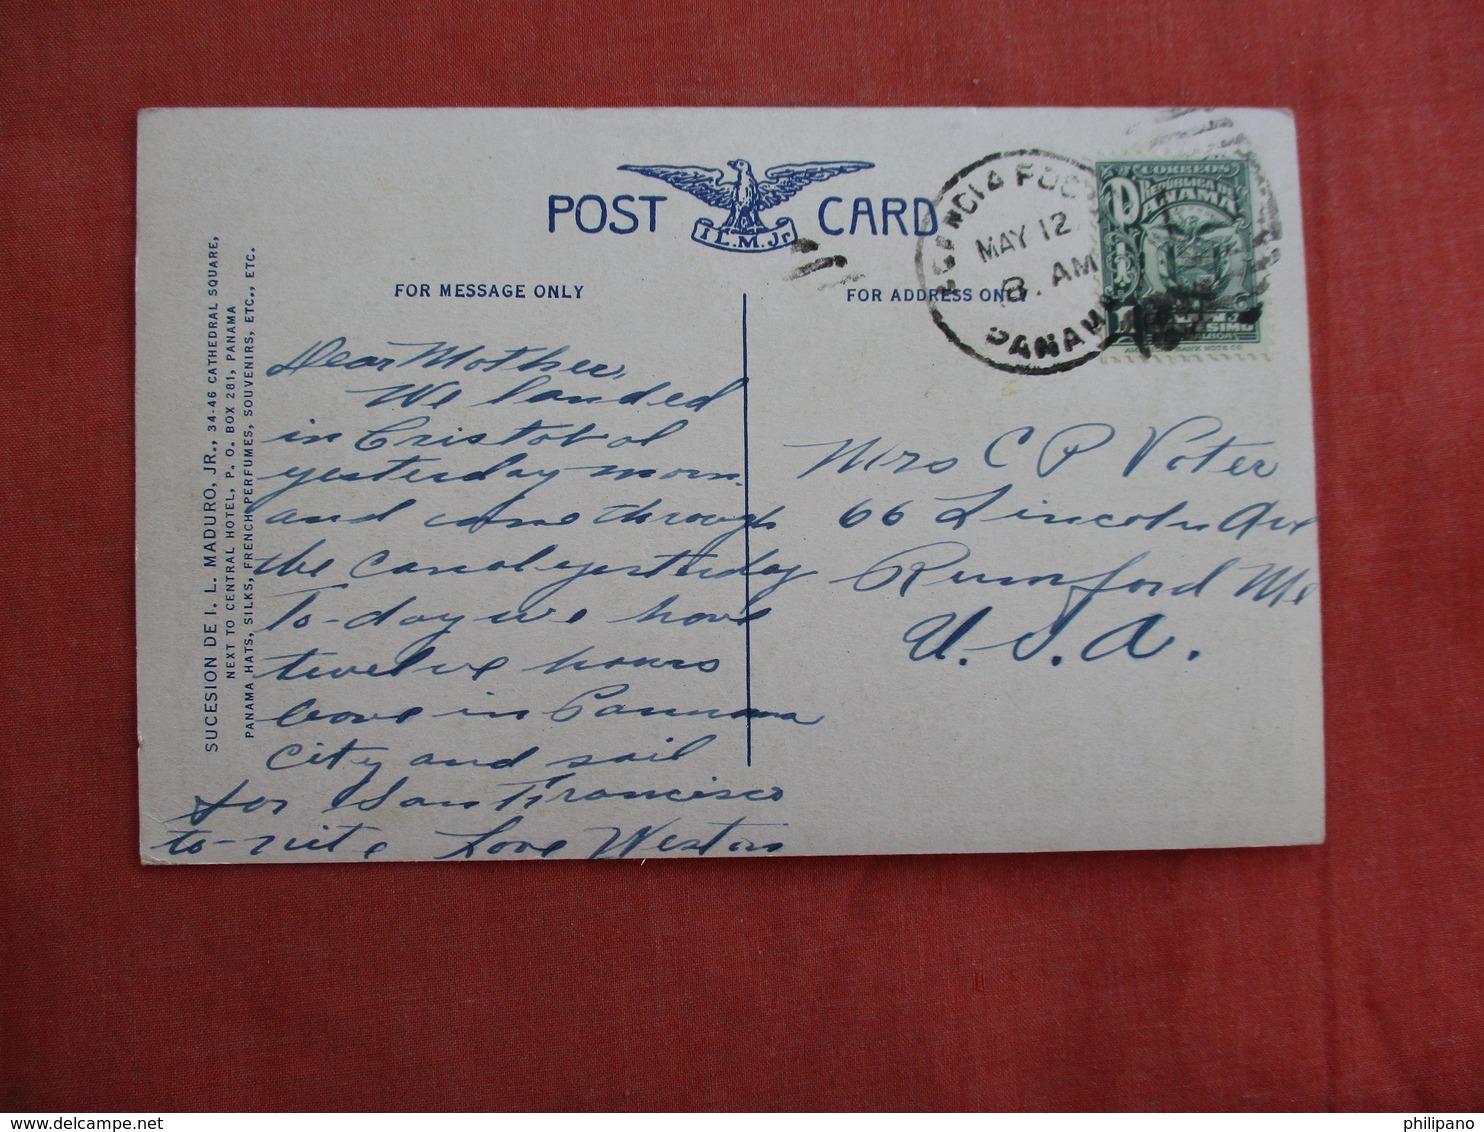 POST CARD
I. L. M. Jr.
FOR MESSAGE ONLY
FOR ADDRESS ONLY
SUCESION DE I. L. MADURO, JR., 34-46 CATHEDRAL SQUARE,
NEXT TO CENTRAL HOTEL, P. O. BOX 281, PANAMA
PANAMA HATS, SILKS, FRENCH PERFUMES, SOUVENIRS, ETC., ETC.
Dear Mother,
We landed
in Cristobal
yesterday morn.
and came through
the Canal yesterday
To-day we have
twelve hours
leave in Pannama
City and sail
for San Francisco
to-nite Love Weston
MAY 12
8. AM
PANAMA
CORREOS
REPUBLICA DE
PANAMA
Mrs C P Voter
66 Lincoln Ave
Rumford Me
U.S.A.
philipano